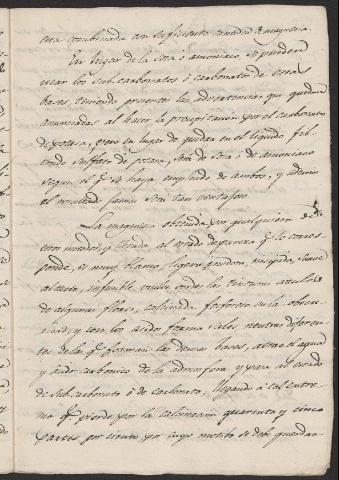 este combinada con suficiente cantidad de magnesia.
En lugar de la sosa o amoniaco, se pueden
usar los sub-carbonatos ó carbonatos de estas
bases, teniendo presentes las advertencias que quedan
anunciadas al hacer la precipitacion por el carbonato
de potasa, pero en lugar de quedar en el líquido fil-
trado sulfato de potasa, será de sosa ó de amoniaco
segun el q.e se haya empleado de ambos, y ademas
el resultado jamas será tan ventajoso
La magnesia obtenida por qualquiera de
estos metodos, y llevada al estado de pureza q.e le corres-
ponde, es muy blanca, ligera, inodora, insipida, suave
al tacto, infusible, vuelve verdes las tinturas azules
de algunas flores, calcinada fosforece en la obscu-
ridad, y con los acidos forma sales neutras diferen-
tes de las q.e forman las demas bases, atrae el agua
y ácido carbonico de la atmosfera y pasa al estado
de sub-carbonato ó de carbonato, llegando á tal extre-
mo q.e pierde por la calcinacion quarenta y cinco
partes por ciento, por cuyo motibo se debe guardar